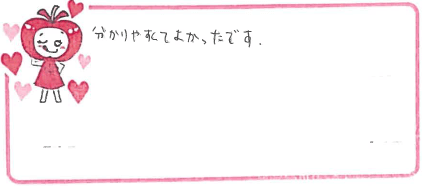 分かりやすくてよかったです.